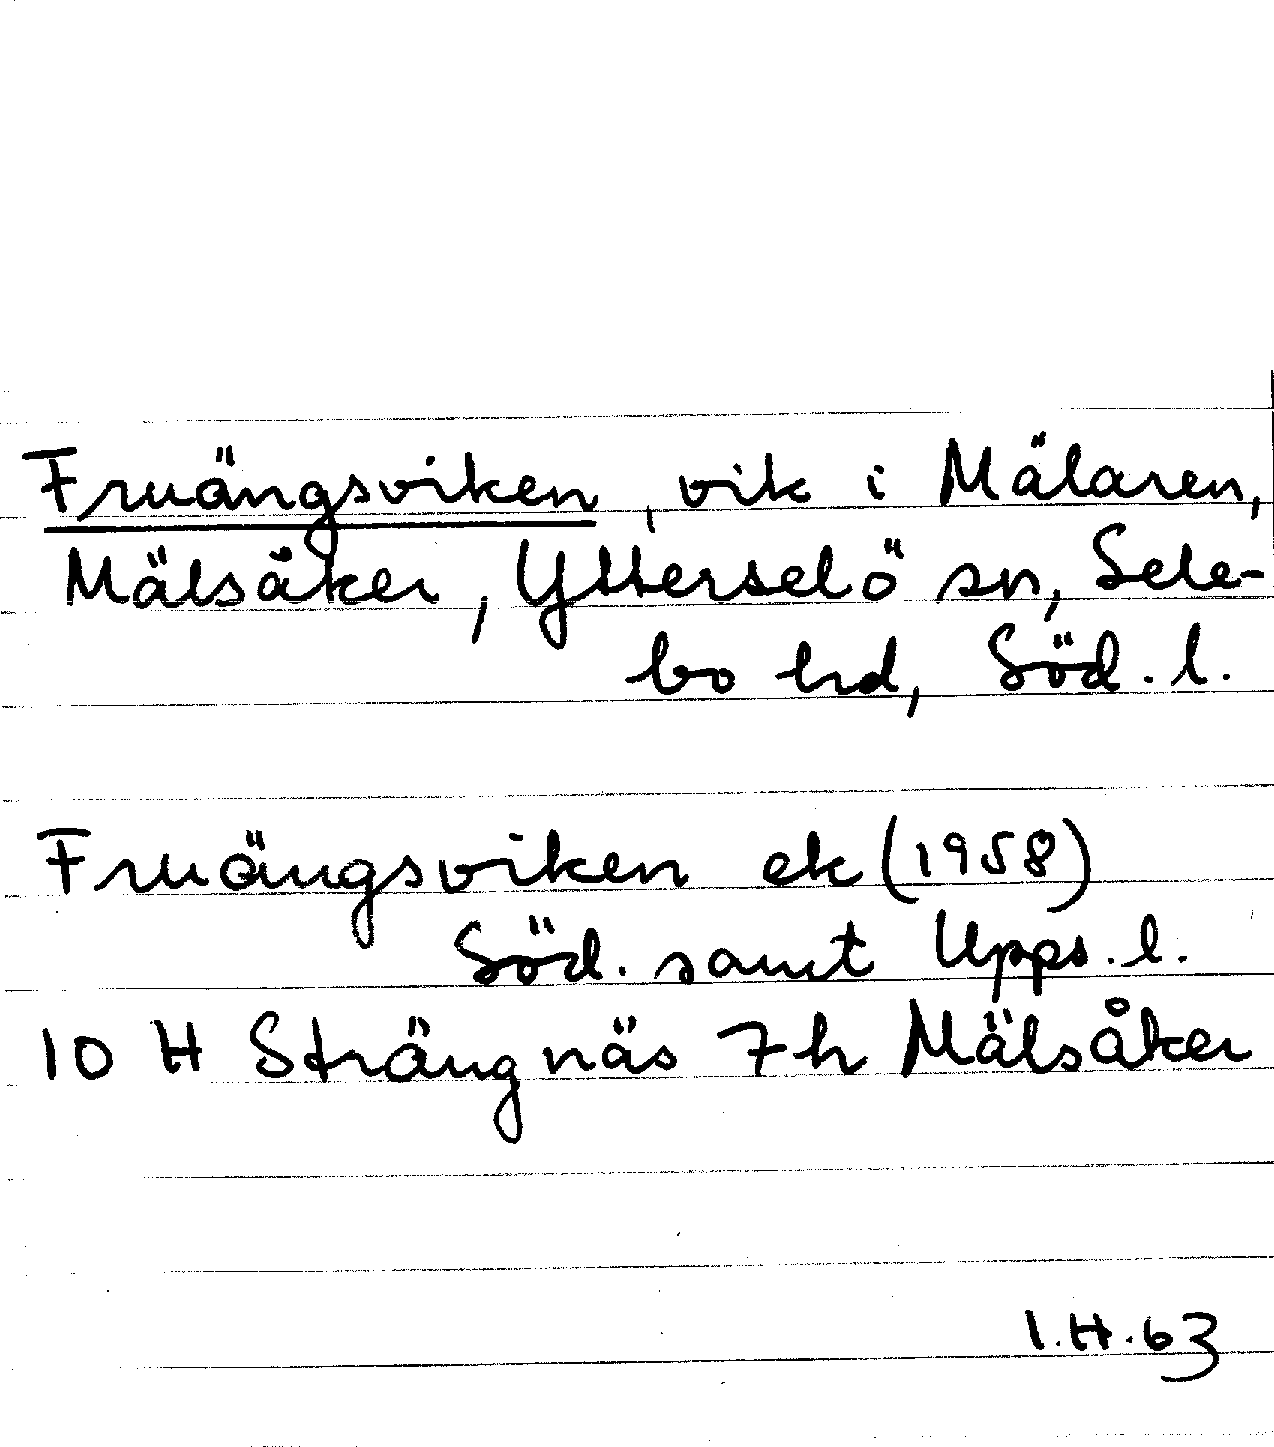 Fruängsviken, vik i Mälaren,
Mälsåker, Ytterselö sn, Sele-
bo hd, Söd. l.
Fruängsviken ek (1958)
Söd. samt Upps. l.
10 H Strängnäs 7h Mälsåker
I.H.63